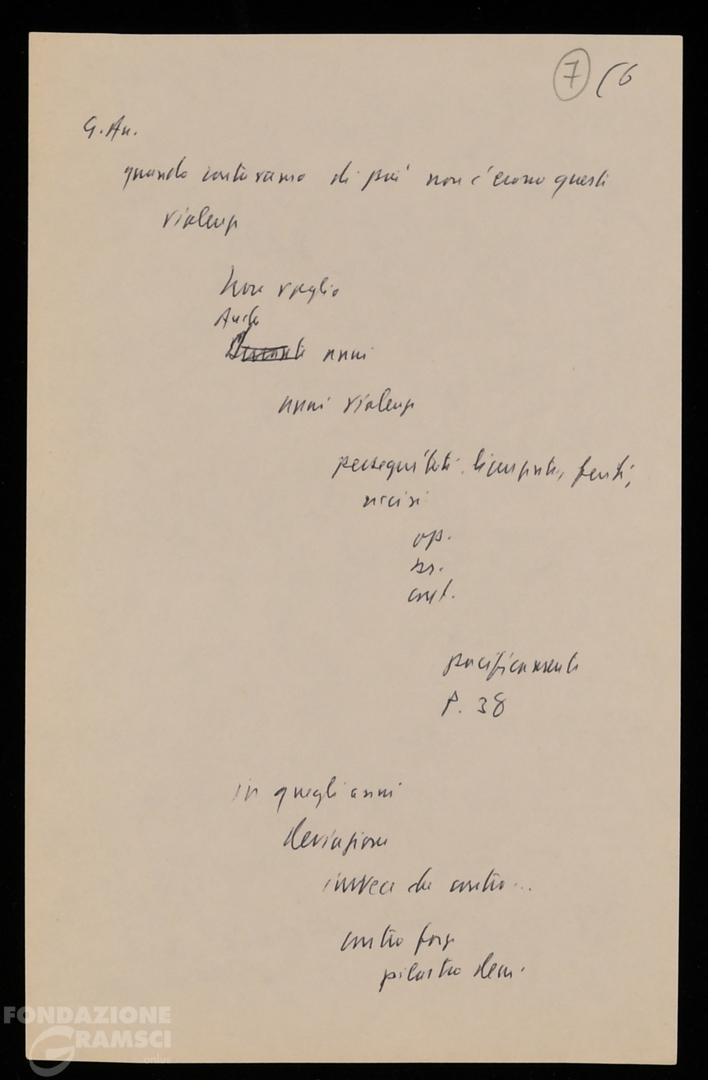 7 (6
G. An.
quando contavamo di più non c'erano questi
violenze
Non voglio
Anche
anni
anni violenze
perseguitati, licenziati, feriti,
uccisi
op.
br.
cont.
pacificamente
P. 38
in quegli anni
deviazione
invece che contro...
contro forze
pilastro dem.
FONDAZIONE
GRAMSCI
onlus